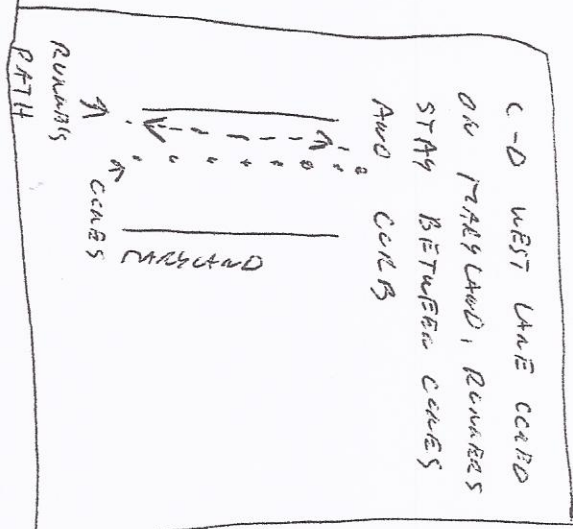 C-D WEST LANE CONED
ON MARYLAND, RUNNERS
STAY BETWEEN CONES
AND CURB
MARYLAND
CONES
RUNNERS
PATH